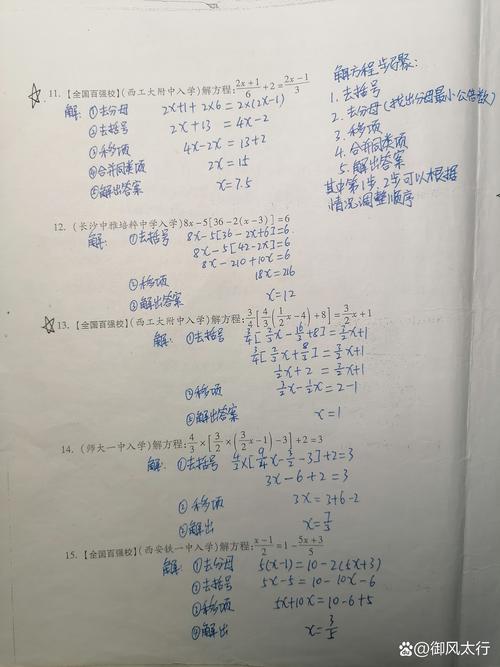 ☆ 11.【全国百强校】(西工大附中入学)解方程:(2x+1)/6+2=(2x-1)/3
解: ①去分母 2x+1+2×6=2×(2x-1)
②去括号 2x+13=4x-2
③移项 4x-2x=13+2
④合并同类项 2x=15
⑤解出答案 x=7.5
解方程步骤:
1. 去括号
2. 去分母(找出分母最小公倍数)
3. 移项
4. 合并同类项
5. 解出答案
其中第1步,2步可以根据
情况调整顺序
12.(长沙中雅培粹中学入学)8x-5[36-2(x-3)]=6
解: ①去括号 8x-5[36-2x+6]=6
8x-5[42-2x]=6
8x-210+10x=6
18x=216
②移项
③解出答案 x=12
☆ 13.【全国百强校】(西工大附中入学)解方程:3/4[4/3(1/2x-4)+8]=3/2x+1
解: ①去括号 3/4[2/3x-16/3+8]=3/2x+1
3/4[2/3x+8/3]=3/2x+1
1/2x+2=3/2x+1
②移项 3/2x-1/2x=2-1
③解出答案 x=1
14.(师大一中入学)解方程:4/3×[3/2×(3/2x-1)-3]+2=3
解: ①去括号 4/3×[9/4x-3/2-3]+2=3
3x-6+2=3
②移项 3x=3+6-2
③解出 x=7/3
15.【全国百强校】(西安铁一中入学)解方程:(x-1)/2=1-(5x+3)/5
解: ①去分母 5(x-1)=10-2(5x+3)
②去括号 5x-5=10-10x-6
③移项 5x+10x=10-6+5
④解出 x=3/5
Bai百科@御风太行